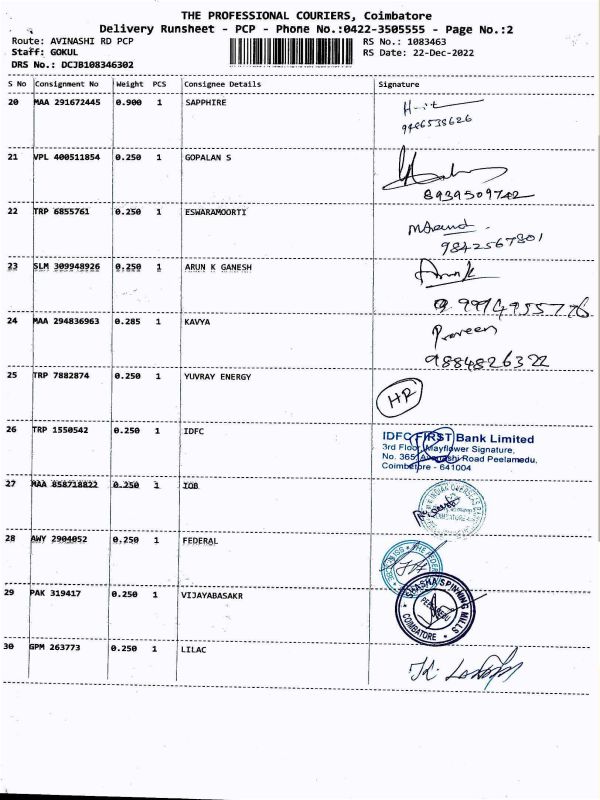 THE PROFESSIONAL COURIERS, Coimbatore
Delivery Runsheet - PCP - Phone No.:0422-3505555 - Page No.:2
Route: AVINASHI RD PCP RS No.: 1083463
Staff: GOKUL RS Date: 22-Dec-2022
DRS No.: DCJB108346302
S No Consignment No Weight PCS Consignee Details Signature
20 MAA 291672445 0.900 1 SAPPHIRE
9486538626
21 VPL 400511854 0.250 1 GOPALAN S
8939509742
22 TRP 6855761 0.250 1 ESWARAMOORTI
9842567801
23 SLM 309948926 0.250 1 ARUN K GANESH
9994955776
24 MAA 294836963 0.285 1 KAVYA Praveen
9884826322
25 TRP 7882874 0.250 1 YUVRAY ENERGY HR
26 TRP 1550542 0.250 1 IDFC
IDFC FIRST Bank Limited
3rd Floor, Mayflower Signature,
No. 365, Avanashi Road Peelamedu,
Coimbatore - 641004
27 MAA 858718822 0.250 1 IOB
INDIAN OVERSEAS
28 AWY 2904052 0.250 1 FEDERAL
THE FEDERAL
29 PAK 319417 0.250 1 VIJAYABASAKR
SHASHA SPINNING MILLS
COIMBATORE
30 GPM 263773 0.250 1 LILAC